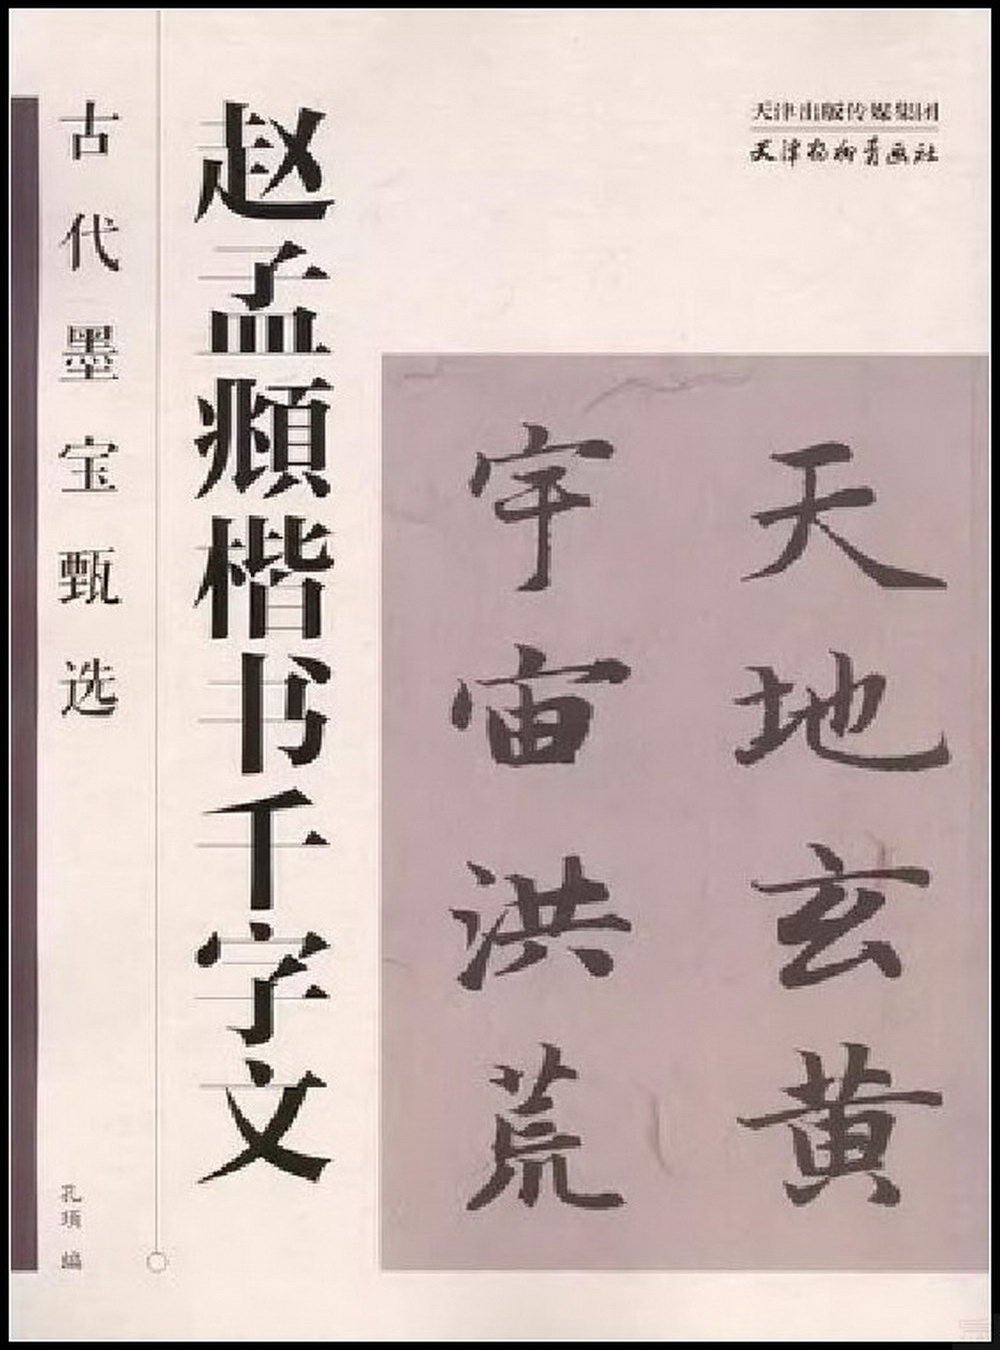 古代墨宝甄选
赵孟頫楷书千字文
天津出版传媒集团
天津杨柳青画社
天地玄黄
宇宙洪荒
孔瑱 编